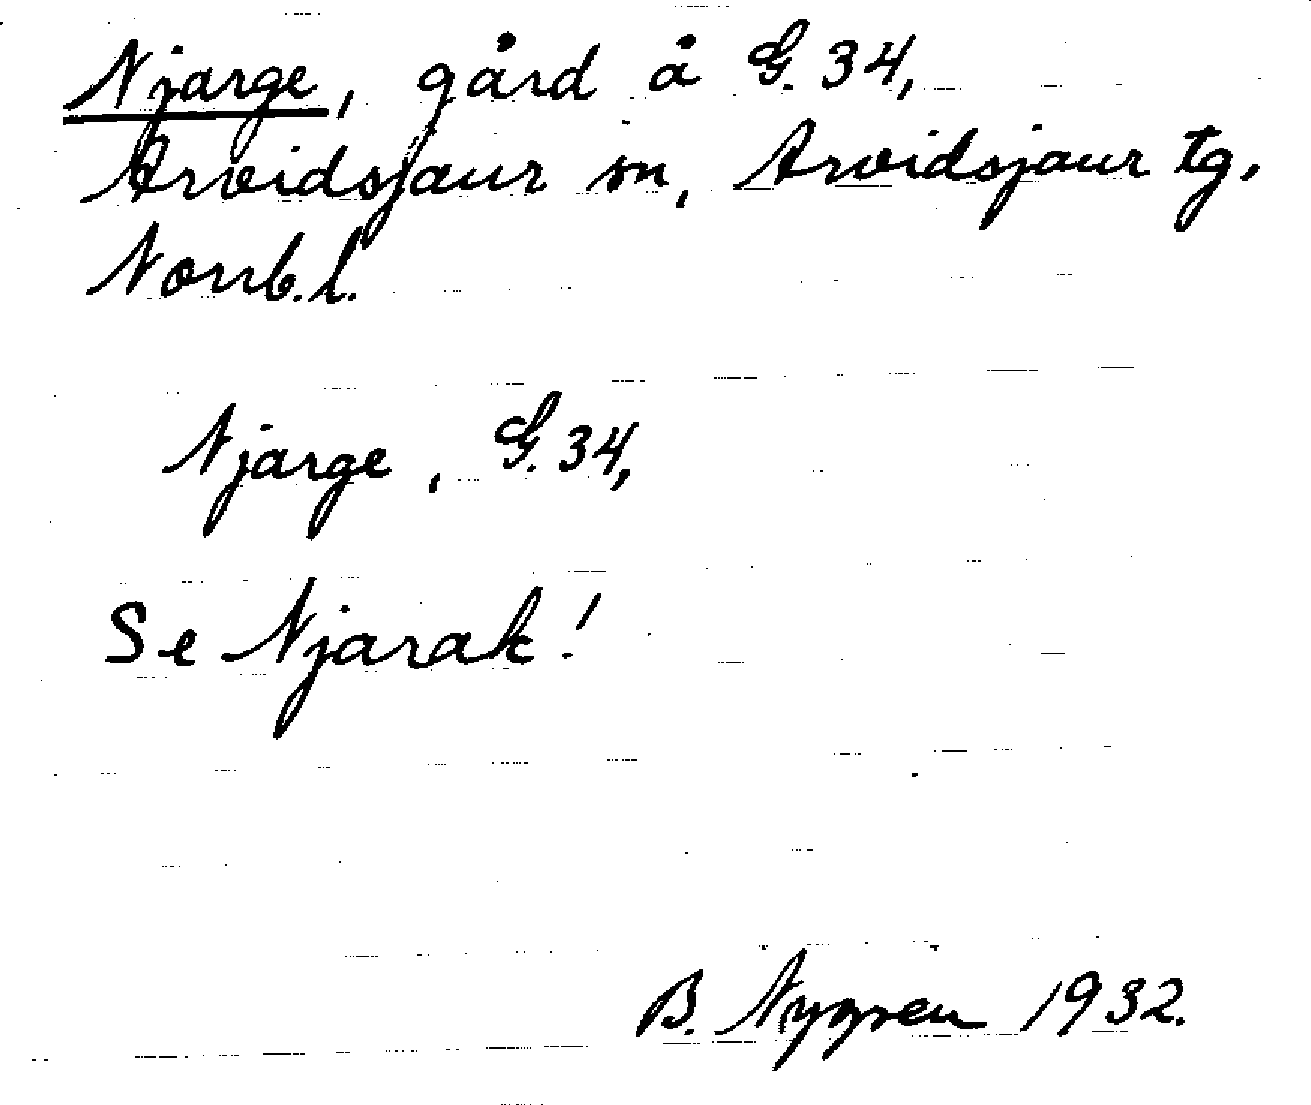 Njarge, gård å G. 34,
Arvidsjaur sn, Arvidsjaur tg.
Norrb.l.
Njarge, G. 34,
Se Njarak!
B. Nygren 1932.